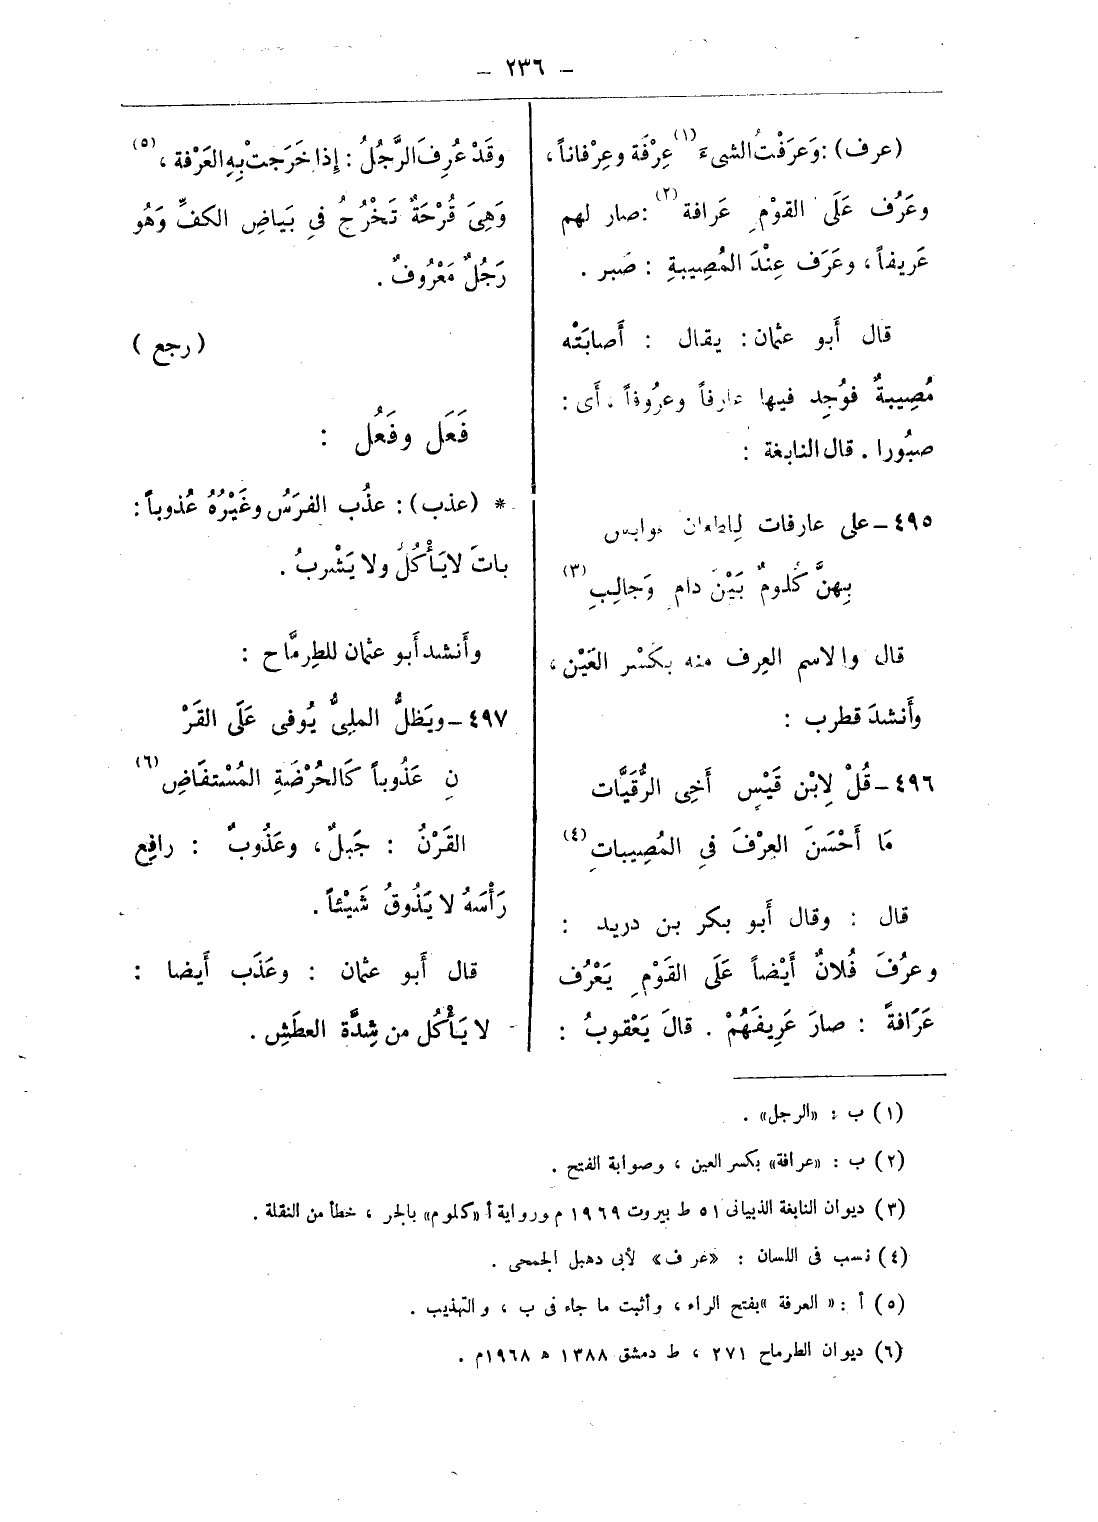 – ٢٣٦ –
(عرف) : وَعرَفْتُ الشىءَ (١) عِرْفَة وعِرْفاناً ،
وعَرُف عَلَى القوْمِ عَرافة (٢) : صار لهم
عَريفاً ، وعَرَف عِنْدَ المُصِيبةِ : صَبر .
قال أَبو عثمان : يقال : أَصابَتْه
مُصِيبةٌ فوُجِد فيها عارفاً وعرُوفاً . أَى :
صبُورا . قال النابغة :
٤٩٥ – على عارفات لِلطعان عوابس
بِهنَّ كُلومٌ بَيْنَ دامٍ وَجالِبِ (٣)
قال والاسم العِرف منه بكَسْر العَيْن ،
وأَنشدَ قطرب :
٤٩٦ – قُلْ لِابْن قَيْسٍ أَخِى الرُّقَيَّات
مَا أَحْسَنَ العِرْفَ فىِ المُصِيباتِ (٤)
قال : وقال أَبو بكر بن دريد :
وعرُفَ فُلانٌ أَيْضاً عَلَى القَوْمِ يَعْرُف
عَرَافةً : صارَ عَرِيفَهُمْ . قالَ يَعْقوبُ :
وقَدْ عُرِفَ الرَّجُلُ : إِذا خَرَجتْ بِهِ العَرْفة ، (٥)
وَهِىَ قُرْحَةٌ تَخْرُجُ فىِ بَياضِ الكفِّ وَهُو
رَجُلٌ مَعْرُوفٌ .
(رجع)
فَعَل وفَعُل :
* (عذب) : عذُب الفرَسُ وغَيْرُهُ عُذوباً :
باتَ لايَأْكُلُ ولا يَشْربُ .
وأَنشد أَبو عثمان للطِرمَّاح :
٤٩٧ – ويَظلُّ الملِىُّ يُوفى عَلَى القَرْ
نِ عَذُوباً كَالحُرْضَةِ المُسْتفَاضِ (٦)
القَرْنُ : جَبلٌ ، وعَذُوبٌ : رافِع
رَأْسَهُ لا يَذُوقُ شَيْئاً .
قال أَبو عثمان : وعَذَب أَيضا :
لا يَأْكُل من شِدَّة العطَشِ .
(١) ب : «الرجل» .
(٢) ب : «عرافة» بكسر العين ، وصوابة الفتح .
(٣) ديوان النابغة الذبيانى ٥١ ط بيروت ١٩٦٩ م ورواية أ «كلوم» بالجر ، خطأ من النقلة .
(٤) نسب فى اللسان : «عرف» لأبى دهبل الجمحى .
(٥) أ : «العرفة» بفتح الراء ، وأثبت ما جاء فى ب ، والتهذيب .
(٦) ديوان الطرماح ٢٧١ ، ط دمشق ١٣٨٨ ه ١٩٦٨م .